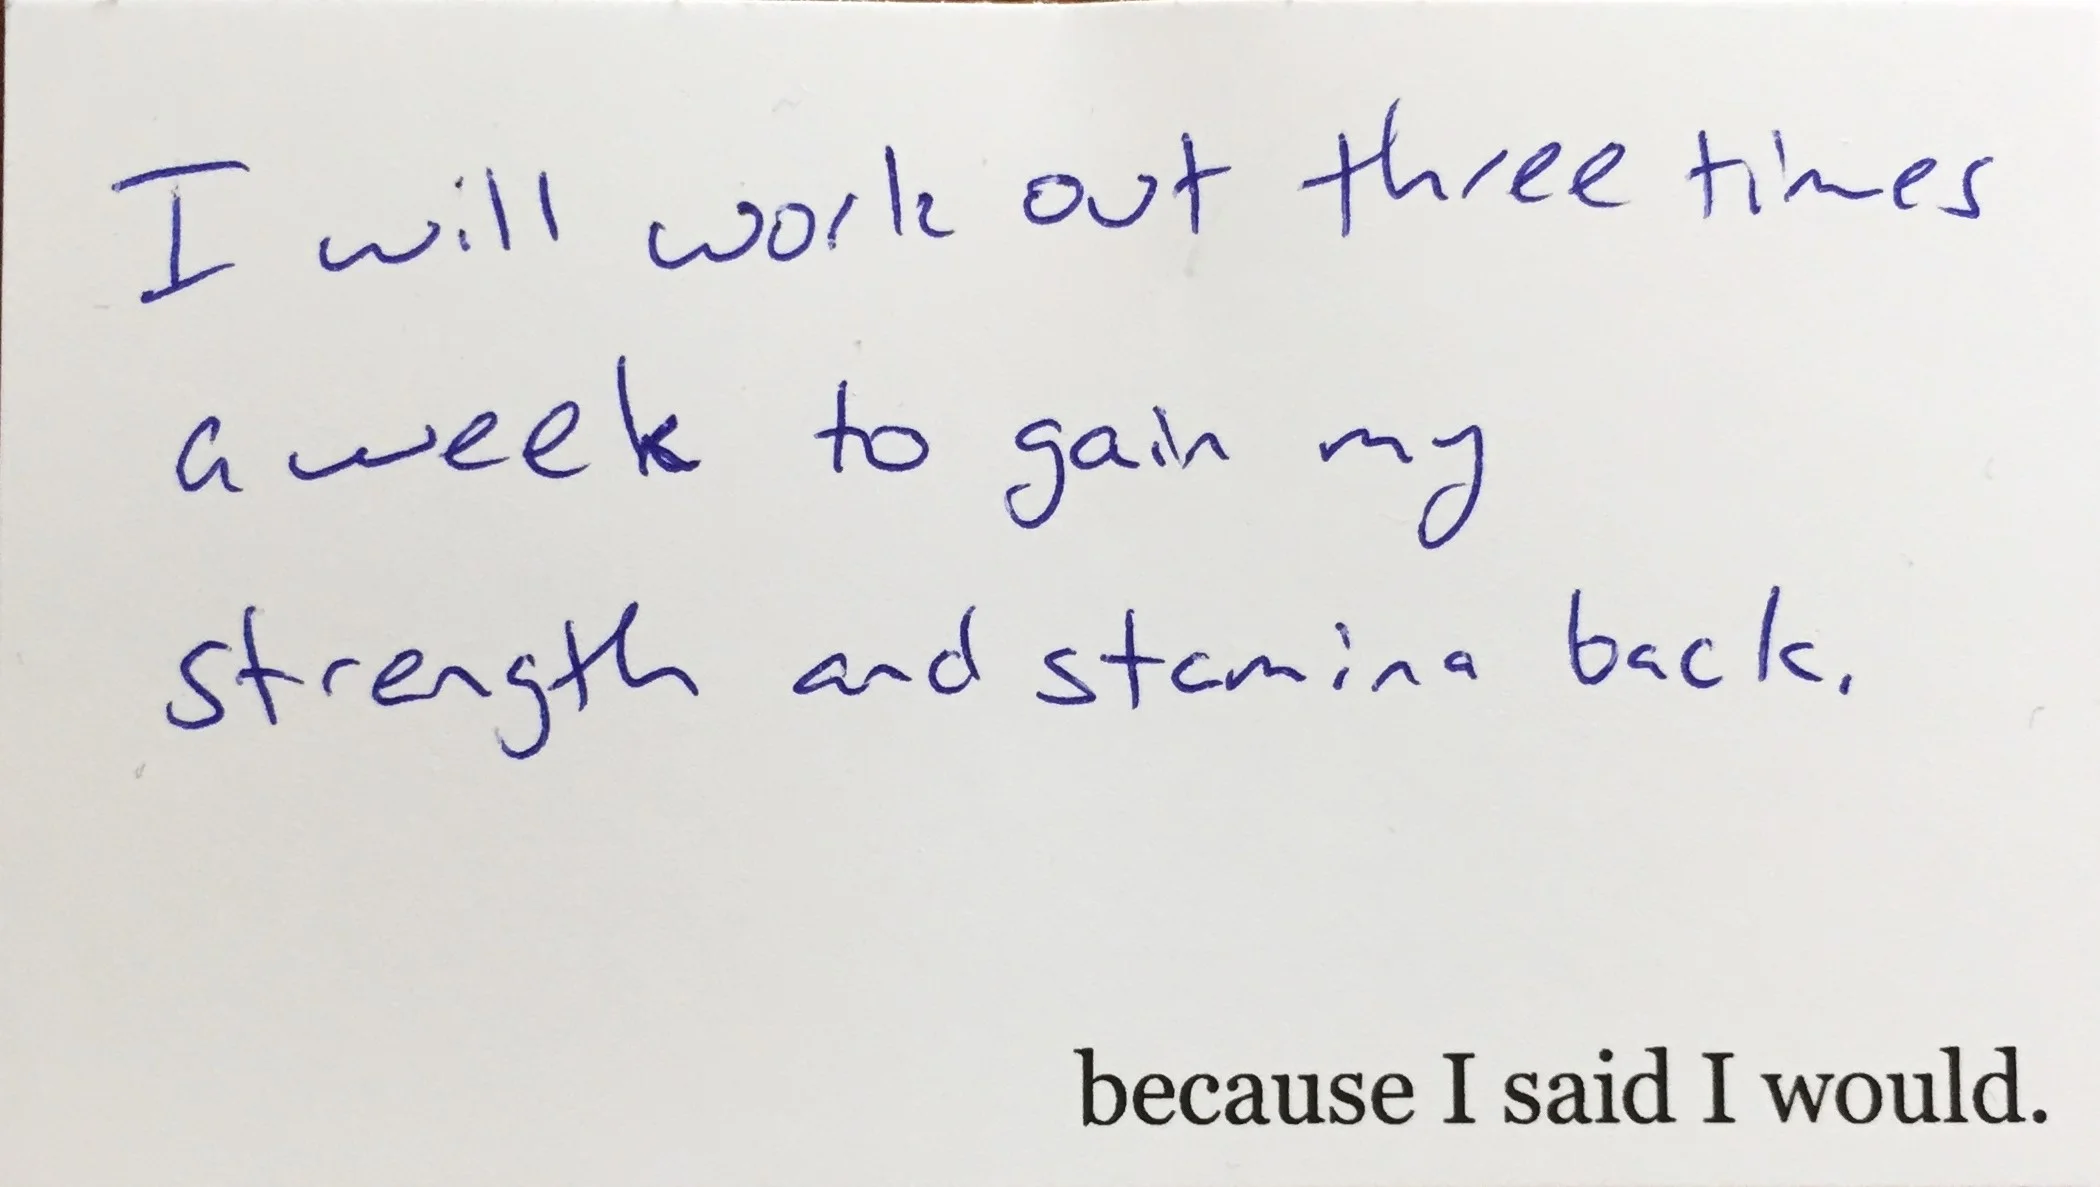 I will work out three times
a week to gain my
strength and stamina back.
because I said I would.